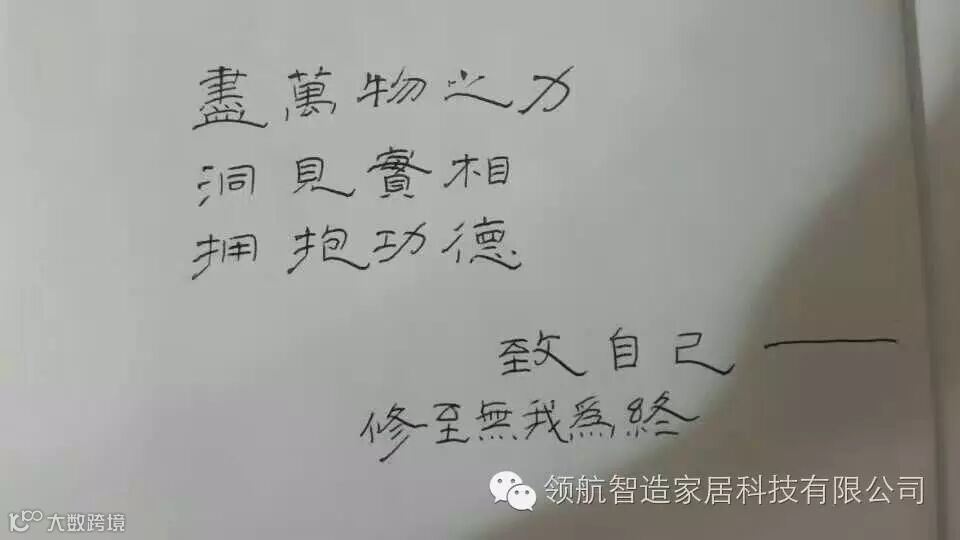 盡萬物之力
洞見實相
拥抱功德
致自己——
修至無我為終
领航智造家居科技有限公司
大数跨境